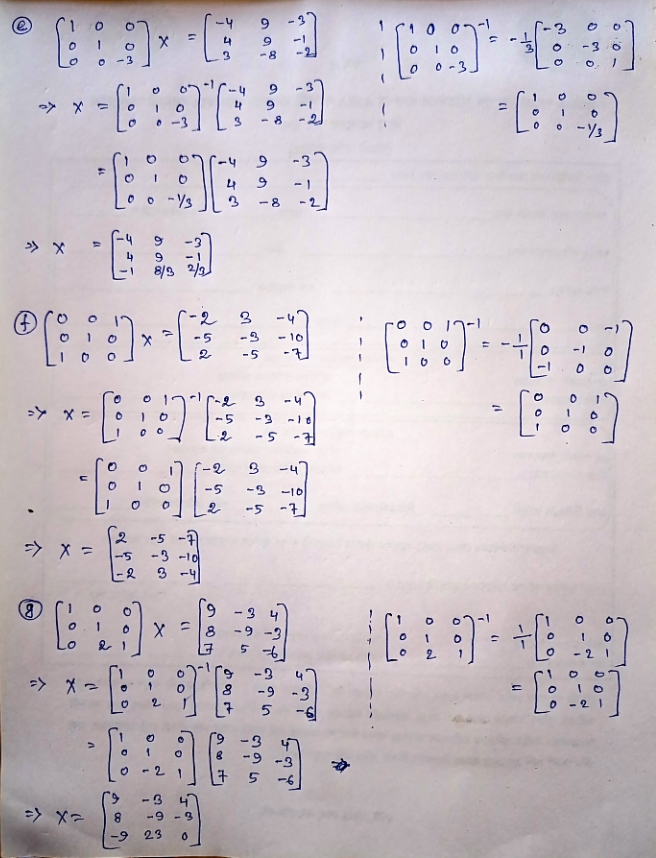 (e) [1 0 0; 0 1 0; 0 0 -3] X = [-4 9 -3; 4 9 -1; 3 -8 -2] | [1 0 0; 0 1 0; 0 0 -3]^-1 = -1/3 [-3 0 0; 0 -3 0; 0 0 1]
=> X = [1 0 0; 0 1 0; 0 0 -3]^-1 [-4 9 -3; 4 9 -1; 3 -8 -2] | = [1 0 0; 0 1 0; 0 0 -1/3]
= [1 0 0; 0 1 0; 0 0 -1/3] [-4 9 -3; 4 9 -1; 3 -8 -2]
=> X = [-4 9 -3; 4 9 -1; -1 8/3 2/3]
(f) [0 0 1; 0 1 0; 1 0 0] X = [-2 3 -4; -5 -3 -10; 2 -5 -7] | [0 0 1; 0 1 0; 1 0 0]^-1 = -1/1 [0 0 -1; 0 -1 0; -1 0 0]
=> X = [0 0 1; 0 1 0; 1 0 0]^-1 [-2 3 -4; -5 -3 -10; 2 -5 -7] | = [0 0 1; 0 1 0; 1 0 0]
= [0 0 1; 0 1 0; 1 0 0] [-2 3 -4; -5 -3 -10; 2 -5 -7]
=> X = [2 -5 -7; -5 -3 -10; -2 3 -4]
(g) [1 0 0; 0 1 0; 0 2 1] X = [9 -3 4; 8 -9 -3; 7 5 -6] | [1 0 0; 0 1 0; 0 2 1]^-1 = 1/1 [1 0 0; 0 1 0; 0 -2 1]
=> X = [1 0 0; 0 1 0; 0 2 1]^-1 [9 -3 4; 8 -9 -3; 7 5 -6] | = [1 0 0; 0 1 0; 0 -2 1]
= [1 0 0; 0 1 0; 0 -2 1] [9 -3 4; 8 -9 -3; 7 5 -6]
=> X = [9 -3 4; 8 -9 -3; -9 23 0]